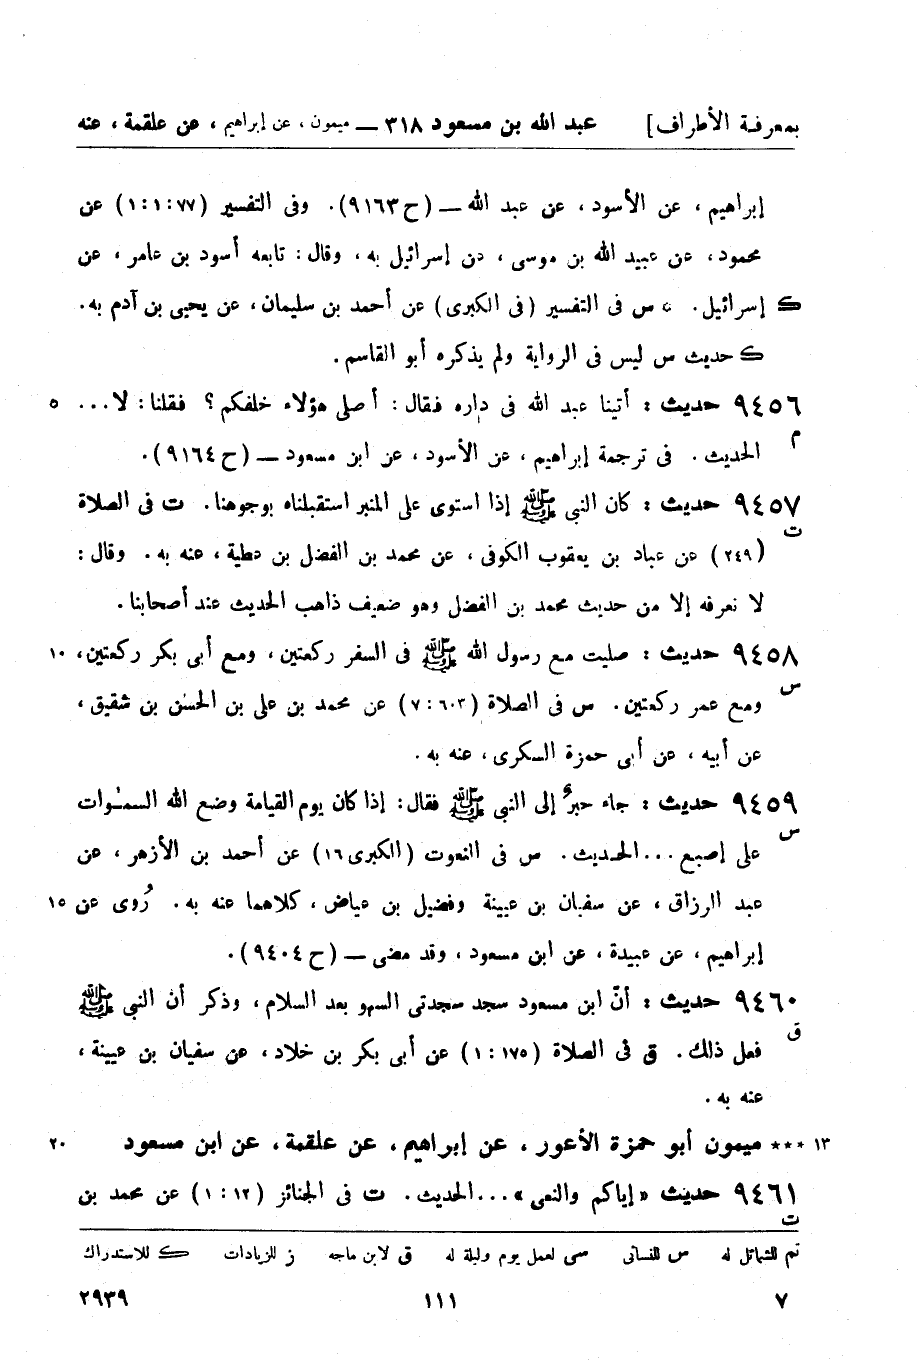 بمعرفة الأطراف] عبد الله بن مسعود ٣١٨ — ميمون، عن إبراهيم، عن علقمة، عنه
إبراهيم، عن الأسود، عن عبد الله — (ح ٩١٦٣). وفى التفسير (٧٧: ١: ١) عن
محمود، عن عبيد الله بن موسى، عن إسرائيل به، وقال: تابعه أسود بن عامر، عن
ك إسرائيل. * س فى التفسير (فى الكبرى) عن أحمد بن سليمان، عن يحيى بن آدم به.
ك حديث س ليس فى الرواية ولم يذكره أبو القاسم.
٩٤٥٦ حديث: أتينا عبد الله فى داره فقال: أصلى هؤلاء خلفكم؟ فقلنا: لا... ٥
م الحديث. فى ترجمة إبراهيم، عن الأسود، عن ابن مسعود — (ح ٩١٦٤).
٩٤٥٧ حديث: كان النبى ﷺ إذا استوى على المنبر استقبلناه بوجوهنا. ت فى الصلاة
ت (٢٤٩) عن عباد بن يعقوب الكوفى، عن محمد بن الفضل بن عطية، عنه به. وقال:
لا نعرفه إلا من حديث محمد بن الفضل وهو ضعيف ذاهب الحديث عند أصحابنا.
٩٤٥٨ حديث: صليت مع رسول الله ﷺ فى السفر ركعتين، ومع أبى بكر ركعتين، ١٠
س ومع عمر ركعتين. س فى الصلاة (٦٠٣: ٧) عن محمد بن على بن الحسن بن شقيق،
عن أبيه، عن أبى حمزة السكرى، عنه به.
٩٤٥٩ حديث: جاء حبرٌ إلى النبى ﷺ فقال: إذا كان يوم القيامة وضع الله السمٰوات
س على إصبع... الحديث. س فى النعوت (الكبرى ١٦) عن أحمد بن الأزهر، عن
عبد الرزاق، عن سفيان بن عيينة وفضيل بن عياض، كلاهما عنه به. رُوى عن ١٥
إبراهيم، عن عبيدة، عن ابن مسعود، وقد مضى — (ح ٩٤٠٤).
٩٤٦٠ حديث: أنّ ابن مسعود سجد سجدتى السهو بعد السلام، وذكر أن النبى ﷺ
ق فعل ذلك. ق فى الصلاة (١٧٥: ١) عن أبى بكر بن خلاد، عن سفيان بن عيينة،
عنه به.
١٣ *** ميمون أبو حمزة الأعور، عن إبراهيم، عن علقمة، عن ابن مسعود ٢٠
٩٤٦١ حديث «إياكم والنعى»... الحديث. ت فى الجنائز (١٢: ١) عن محمد بن
ت
تم للشمائل له س للنسائى سى لعمل يوم وليلة له ق لابن ماجه ز للزيادات ك للاستدراك
٧ ١١١ ٢٩٣٩